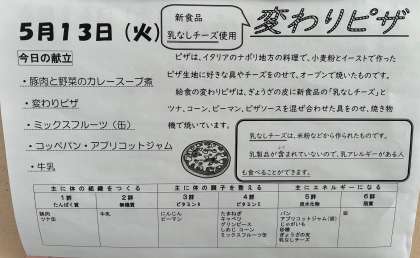 5月13日(火)
新食品
乳なしチーズ使用
変わりピザ
今日の献立
・豚肉と野菜のカレースープ煮
・変わりピザ
・ミックスフルーツ(缶)
・コッペパン・アプリコットジャム
・牛乳
ピザは、イタリアのナポリ地方の料理で、小麦粉とイーストで作った
ピザ生地に好きな具やチーズをのせて、オーブンで焼いたものです。
給食の変わりピザは、ぎょうざの皮に新食品の「乳なしチーズ」と
ツナ、コーン、ピーマン、ピザソースを混ぜ合わせた具をのせ、焼き物
機で焼いています。
乳なしチーズは、米粉などから作られたものです。
乳製品が含まれていないので、乳アレルギーがある人
も食べることができます。
主に体の組織をつくる 主に体の調子を整える 主にエネルギーになる
1群 2群 3群 4群 5群 6群
たんぱく質 無機質 ビタミンA ビタミンC 炭水化物 脂質
豚肉 牛乳 にんじん たまねぎ パン 油
ツナ缶 ピーマン キャベツ アプリコットジャム(袋)
グリンピース じゃがいも
しめじ コーン 砂糖
ミックスフルーツ缶 ぎょうざの皮
乳なしチーズ